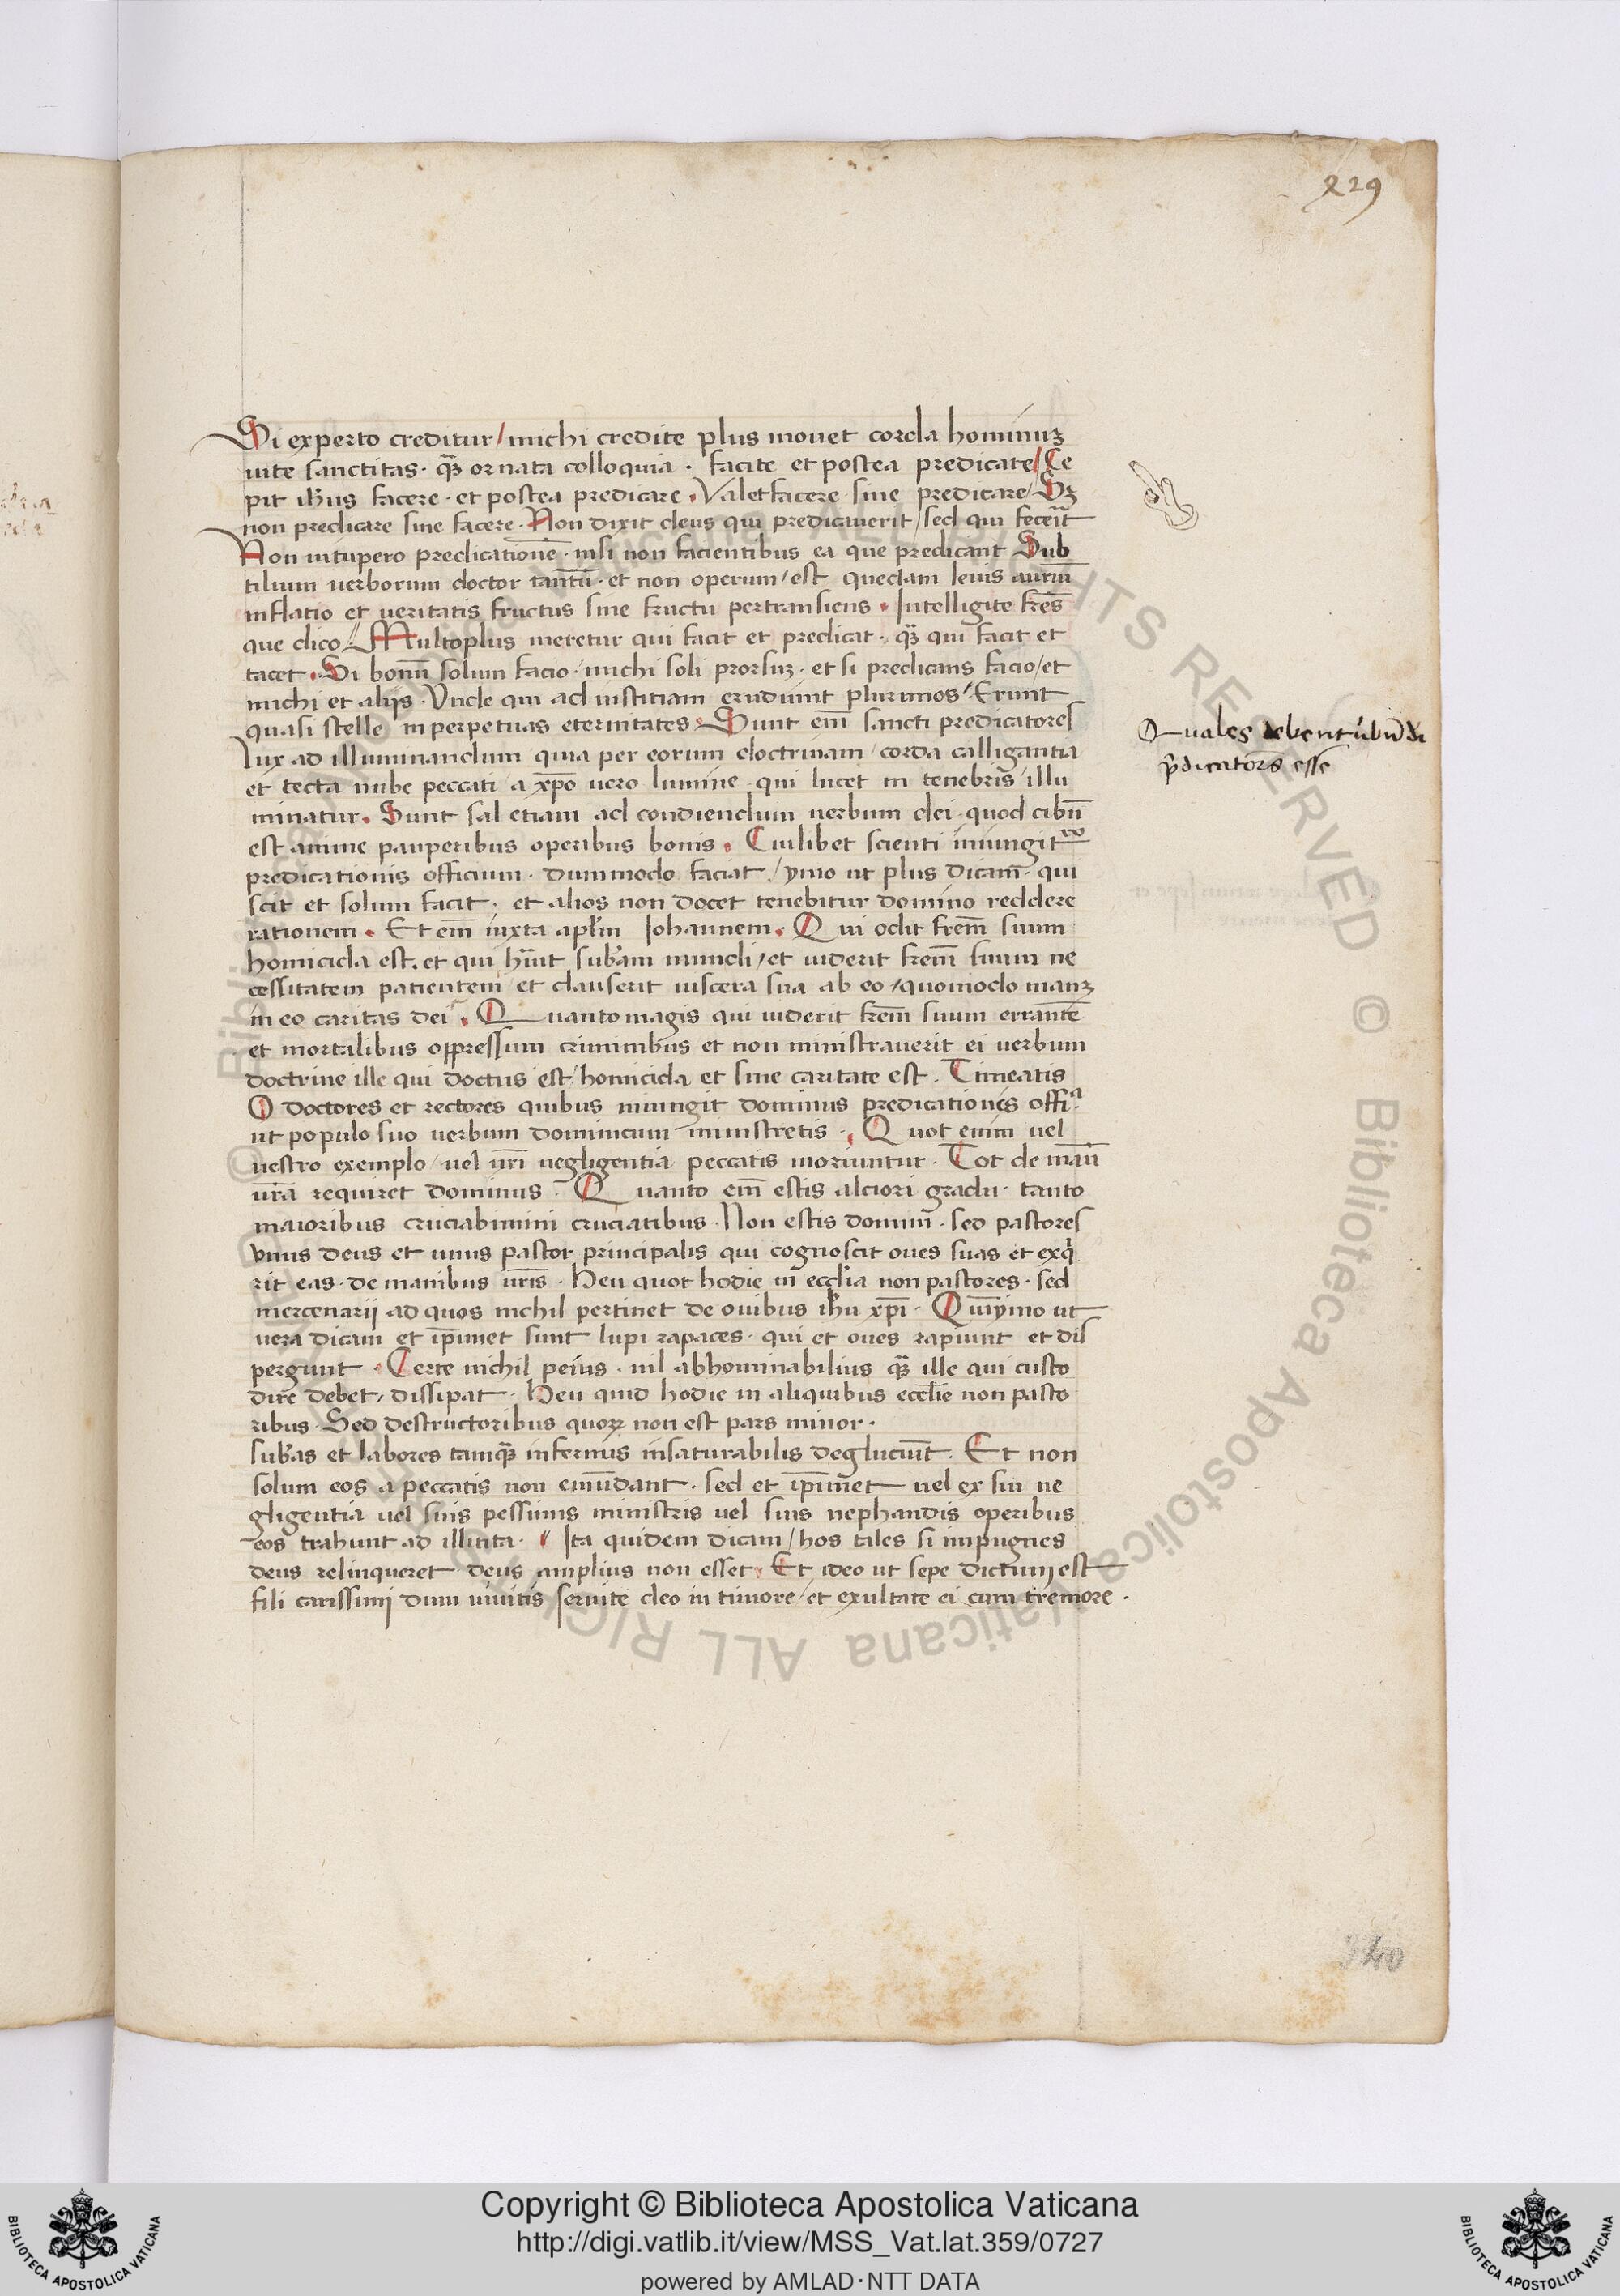 229
Si experto creditur / michi credite plus mouet corda hominuȝ
uite sanctitas · qȝ ornata colloquia · facite et postea predicate / Ce
pit ihus facere · et postea predicare · Valet facere sine predicare / Sȝ
non predicare sine facere · Non dixit deus qui predicauerit / sed qui feceīt
Non uitupero predicationē · nisi non facientibus ea que predicant Sub
tilium uerborum doctor tantū · et non operum / est quedam leuis auriū
inflatio et ueritatis fructus sine fructu pertransiens · Intelligite frēs
que dico // Multoplus meretur qui facit et predicat · qȝ qui facit et
tacet · Si bonū solum facio · michi soli prorsuȝ · et si predicans facio / et
michi et alijs · Unde qui ad iustitiam erudiunt plurimos / Erunt
quasi stelle in perpetuas eternitates · Sunt em̄ sancti predicatores
lux ad illuminandum quia per eorum doctrinam / corda calligantia
et tecta nube peccati a xp̄o uero lumine · qui lucet in tenebris / illu
minatur · Sunt sal etiam ad condiendum uerbum dei · quod cibū
est anime pauperibus operibus bonis · Cuilibet scienti iniungit̄
predicationis officium · dummodo faciat / ymo ut plus dicam̄ · qui
scit et solum facit · et alios non docet tenebitur domino reddere
rationem · Et em̄ iuxta apl̄m Iohannem · Qui odit frem̄ suum
homicida est · et qui hūit sub̄am mundi / et uiderit frem̄ suum ne
cessitatem patientem / et clauserit uiscera sua ab eo / quomodo manȝ
in eo caritas dei · Quanto magis qui uiderit frem̄ suum errantē
et mortalibus oppressum criminibus et non ministrauerit ei uerbum
doctrine ille qui doctus est / homicida et sine caritate est · Timeatis
O doctores et rectores quibus iniungit dominus predicationes offi̅
ut populo suo uerbum dominicum ministretis · Quot enim uel
uestro exemplo / uel ur̄i negligentia peccatis moriuntur · Tot de manū
ur̄a requiret dominus · Quanto em̄ estis alciori gradu · tanto
maioribus cruciabimini cruciatibus · Non estis domini · sed pastores
vnus deus et unus pastor principalis qui cognoscit oues suas et exq̄
rit eas · de manibus ur̄is · Heu quot hodie in eccl̄ia non pastores · sed
mercenarij ad quos nichil pertinet de ouibus ihu xp̄i · Quīymo ut
uera dicam et ip̄imet sunt lupi rapaces · qui et oues rapiunt et dis
pergunt · Certe nichil peius · nil abhominabilius qȝ ille qui custo
dire debet / dissipat · Heu quid hodie in aliquibus eccl̄ie non pasto
ribus · Sed destructoribus quorꝝ non est pars minor ·
sub̄as et labores tamqȝ infernus insaturabilis degluciūt · Et non
solum eos a peccatis non emūdant · sed et ip̄imet uel ex sui ne
gligentia uel suis pessimis ministris uel suis nephandis operibus
eos trahunt ad illitita · Ita quidem dicam / hos tales si impugnes
deus relinqueret deus amplius non esset · Et ideo ut sepe dictum est
fili carissimi dum uiuitis seruite deo in timore / et exultate ei cum tremore ·
Quales debent
p̄dicatores esse
340
© Biblioteca Apostolica Vaticana ALL RIGHTS RESERVED © Biblioteca Apostolica Vaticana ALL RIGHTS
Copyright © Biblioteca Apostolica Vaticana
http://digi.vatlib.it/view/MSS_Vat.lat.359/0727
powered by AMLAD·NTT DATA
BIBLIOTECA APOSTOLICA VATICANA
BIBLIOTECA APOSTOLICA VATICANA